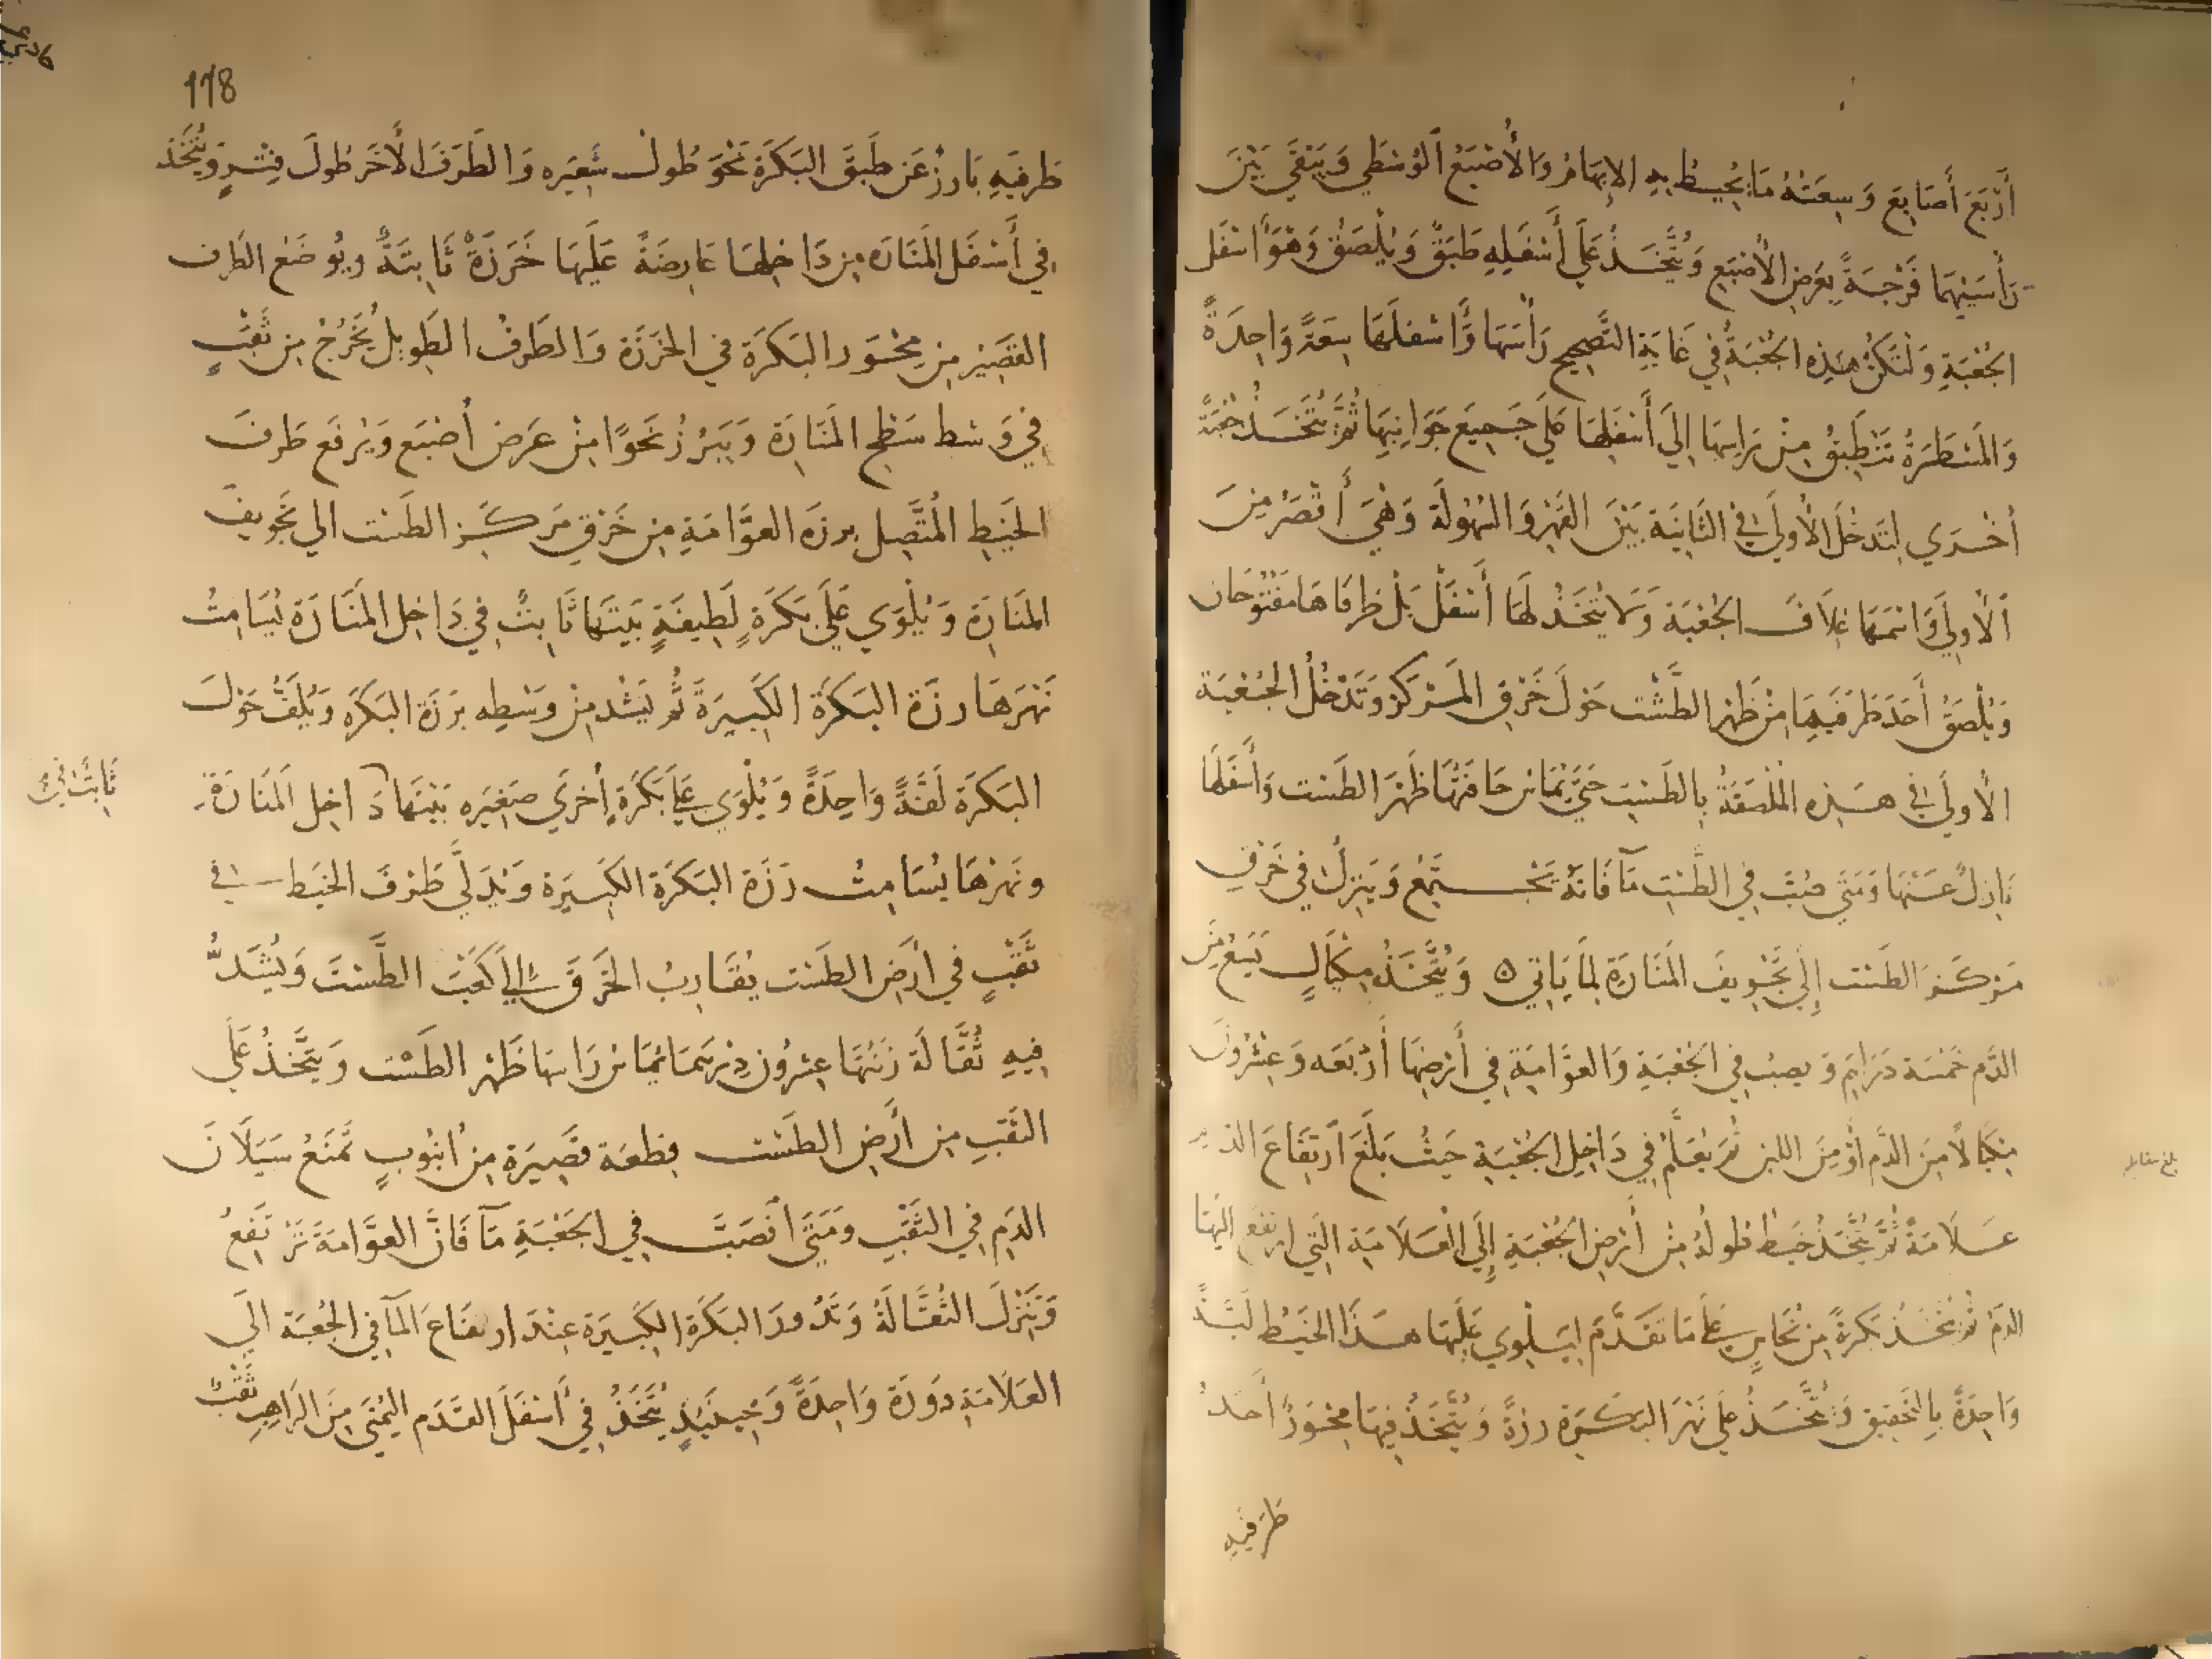 أَرْبَعَ أَصَابِعَ وَسِعَتُهُ مَا يُحِيطُ بِهِ الإِبْهَامُ وَالأُصْبَعُ الوُسْطَى وَيَبْقَى بَيْنَ
رَأْسَيْهِمَا فُرْجَةً بِعَرْضِ الأُصْبَعِ وَيُتَّخَذُ عَلَى أَسْفَلِهِ طَبَقٌ وَيُلْصَقُ وَهُوَ أَسْفَلُ
الجُعْبَةِ وَلْتَكُنْ هَذِهِ الجُعْبَةُ فِي غَايَةِ التَّصْحِيحِ رَأْسَهَا وَأَسْفَلَهَا سِعَةً وَاحِدَةً
وَالمَسْطَرَةُ تَنْطَبِقُ مِنْ رَاسِهَا إِلَى أَسْفَلِهَا عَلَى جَمِيعِ جَوَانِبِهَا ثُمَّ يُتَّخَذُ جُعْبَةً
أُخْرَي لِتَدْخُلَ الأُولَى فِي الثَّانِيَةِ بَيْنَ القَهْرِ وَالسُّهُولَةِ وَهْيَ أَقْصَرُ مِنَ
الأُولَى وَاسْمُهَا غِلَافُ الجُعْبَةِ وَلَا يُتَّخَذُ لَهَا أَسْفَلُ بَلْ طَرَفَاهَا مَفْتُوحَانِ
وَيُلْصَقُ أَحَدُ طَرَفَيْهَا مِنْ ظَهْرِ الطَّشْتِ حَوْلَ خَرْقِ المَرْكَزِ وَتَدْخُلُ الجُعْبَةُ
الأُولَى فِي هَذِهِ المُلْصَقَةِ بِالطَّسْتِ حَتَّى يُمَاسَّ حَافَتُهَا ظَهْرَ الطَّسْتِ وَأَسْفَلُهَا
نَازِلٌ عَنْهَا وَمَتَى صُبَّ فِي الطَّسْتِ مَآ فَانَهُ يَجْتَمِعُ وَيَنْزِلُ فِي خَرْقِ
مَرْكَزِ الطَّسْتِ إِلَى تَجْوِيفِ المَنَارَةِ لِمَا يَاتِي ٥ وَيُتَّخَذُ مِكْيَالٌ يَسَعُ مِنَ
الدَّمِ خَمْسَةَ دَرَاهِمَ وَيصبُّ فِي الجُعْبَةِ وَالعَوَّامَةُ فِي أَرْضِهَا أَرْبَعَه وَعِشْرُونَ
مِكْيَالًا مِنَ الدَّمِ أَوْ مِنَ اللبن ثُمَّ يُعَلَّمُ فِي دَاخِلِ الجُعْبَةِ حَيْثُ بَلَغَ ارْتِفَاعَ الدم
عَلَامَةً ثُمَّ يُتَّخَذُ خَيْطٌ طُولُهُ مِنْ أَرْضِ الجُعْبَةِ إِلَى العَلَامَةِ التِي ارتفع اليها
الدَّمُ ثُمَّ يُتَّخَذُ بَكَرَةً مِنْ نُحَاسٍ عَلَى مَا تَقَدَّمَ لِيَلْوِي عَلَيْهَا هَذَا الخَيْطُ لَفَّةً
وَاحِدَةً بِالتَّحْقِيقِ وَيُتَّخَذُ عَلَى نَهْرِ البَكَرَةِ رَزَّةً وَيُتَّخَذُ فِيهَا مِحْوَرًا أَحَدُ
طَرَفَيْهِ
بلغ مقابلة
118
طَرفَيْهِ بَارِزٌ عَن طَبَقِ البَكَرَةِ نَحْوَ طُولِ شَعِيرَه وَالطَرَفَ الأَخَر طُولَ فِتْرٍ وَيُتَّخَذ
فِي أَسْفَلِ المَنَارَه مِن دَاخِلِهَا عَارِضَةً عَلَيْهَا خَرَزَةٌ ثَابِتَةٌ ويُوضَعُ الطَرف
القَصِيرُ مِن مِحْوَرِ البَكَرَةِ فِي الخَرَزَةِ وَالطَرَفُ الطَوِيلُ يَخْرُجُ مِن ثَقْبٍ
فِي وَسَطِ سَطْحِ المَنَارَةِ وَيَبْرُزُ نَحْوًا مِنْ عَرَضِ أُصْبَع وَيُرْفَع طَرفَ
الخَيْطِ المُتَّصِلِ برزَه العَوَّامَةِ مِن خَرْقِ مَركَز الطَسْت الي تَجْوِيفِ
المَنَارَةِ وَيُلْوَي عَلَى بَكَرَةٍ لَطِيفَةٍ بَيْتهَا ثَابِتٌ فِي دَاخِل المَنَارَةِ يُسَامِتُ
نَهَرهَا رزَةَ البَكَرَةِ الكَبِيرَةِ ثُمَّ يَشُد مِنْ وَسْطِهِ بِرَزَةِ البَكَرَه وَيُلَفُّ حَوْلَ
البَكَرَةِ لَفَّةً وَاحِدَةً وَيُلْوَي عَلَى بَكَرَةٍ أُخرَي صَغِيرَه بَيْتهَا دَاخِل المَنَارَةِ
ثَابِتٌ فِي
ونَهرهَا يُسَامِتُ رَزَة البَكَرَة الكَبِيرَة وَيُدَلَّي طَرفَ الخَيْط فِي
ثَقْبٍ فِي أَرْضِ الطَسْت يُقَارِبُ الخَرْقَ الي كَعْبِ الطَّسْتِ وَيُشَدُّ
فِيهِ ثُقَّالَة زنَتُهَا عِشْرُون دِرْهَمًا يُمَاسّ رَاسهَا ظَهْرَ الطَسْت وَيُتَّخَذُ عَلَى
الثَقْبِ مِن أَرضِ الطَسْت قِطْعَة قَصِيرَة مِن أُنبُوبٍ تَمْنَعُ سَيَلَانَ
الدَمِ فِي الثَقْبِ ومَتَي أَنصَبَّ فِي الجَعْبَةِ مَآ فَانَّ العَوَّامَةَ تَرْتَفِعُ
وَتَنْزِلَ الثُقَّالَةُ وَتَدُورَ البَكَرَة الكَبِيرَة عِنْدَ ارتفَاعَ المَآ فِي الجُعْبَة الَي
العَلَامَةِ دَوْرَةً وَاحِدَةً وَحِينَئِذٍ يُتَّخَذُ فِي أَسْفَلِ القَدَم اليُمْنَى مِنَ الرَاهِبِ ثَقْبٌ